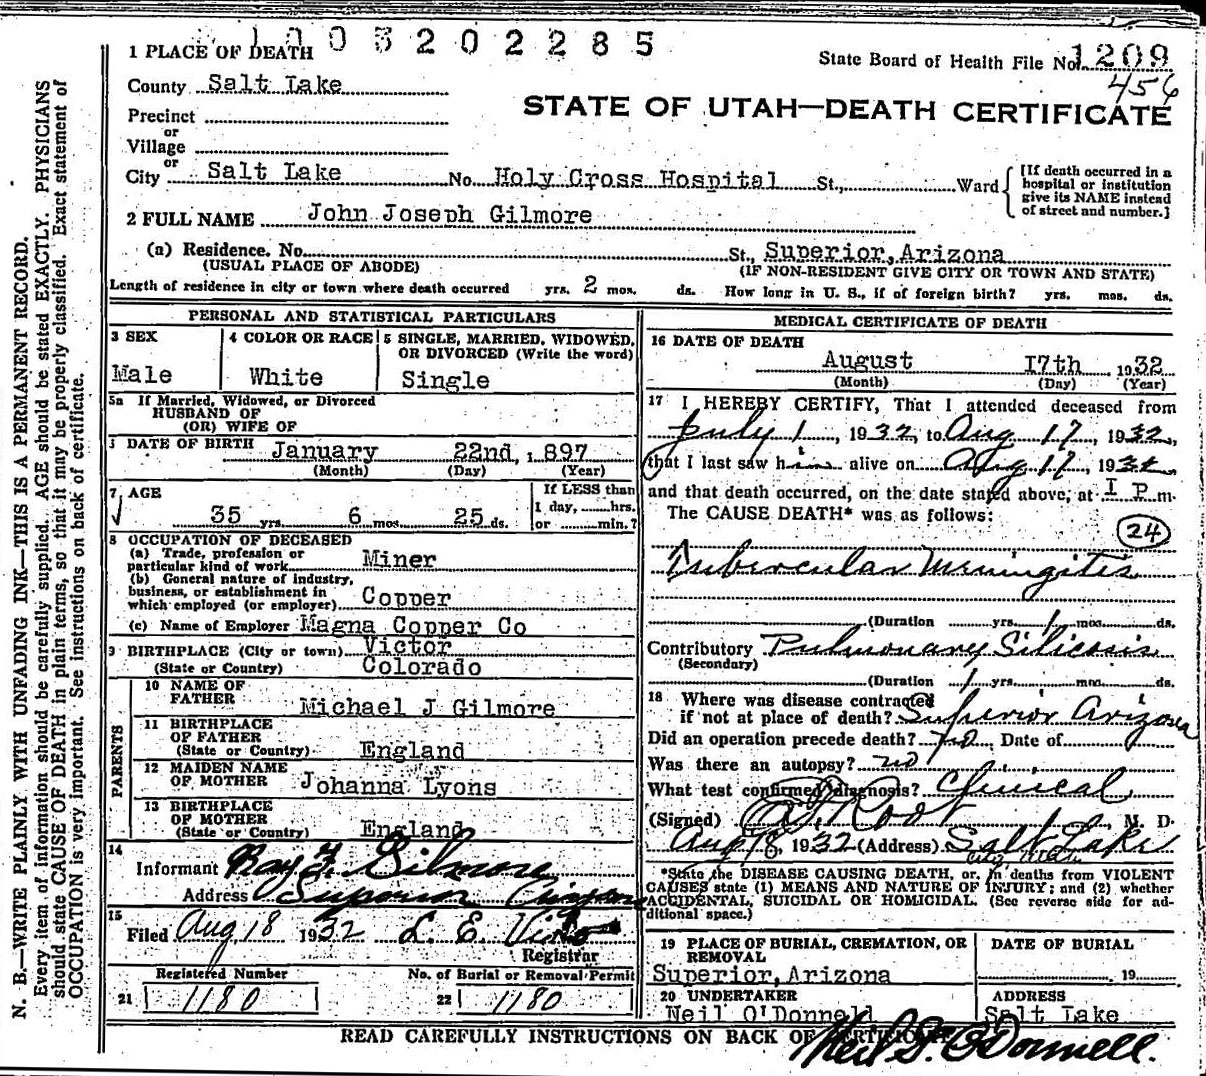 1003202285
1 PLACE OF DEATH
State Board of Health File No. 1209
456
County Salt Lake
STATE OF UTAH—DEATH CERTIFICATE
Precinct
or
Village
or
City Salt Lake No. Holy Cross Hospital St., Ward
[If death occurred in a
hospital or institution
give its NAME instead
of street and number.]
2 FULL NAME John Joseph Gilmore
(a) Residence. No. St., Superior, Arizona
(USUAL PLACE OF ABODE) (IF NON-RESIDENT GIVE CITY OR TOWN AND STATE)
Length of residence in city or town where death occurred yrs. 2 mos. ds. How long in U. S., if of foreign birth? yrs. mos. ds.
PERSONAL AND STATISTICAL PARTICULARS
3 SEX
Male
4 COLOR OR RACE
White
5 SINGLE, MARRIED, WIDOWED,
OR DIVORCED (Write the word)
Single
5a If Married, Widowed, or Divorced
HUSBAND OF
(OR) WIFE OF
DATE OF BIRTH January 22nd, 1897
(Month) (Day) (Year)
7 AGE
35 yrs. 6 mos. 25 ds.
If LESS than
1 day, hrs.
or min.?
8 OCCUPATION OF DECEASED
(a) Trade, profession or
particular kind of work Miner
(b) General nature of industry,
business, or establishment in
which employed (or employer) Copper
(c) Name of Employer Magna Copper Co
9 BIRTHPLACE (City or town) Victor
(State or Country) Colorado
PARENTS
10 NAME OF
FATHER Michael J Gilmore
11 BIRTHPLACE
OF FATHER
(State or Country) England
12 MAIDEN NAME
OF MOTHER Johanna Lyons
13 BIRTHPLACE
OF MOTHER
(State or Country) England
14
Informant Ray F. Gilmore
Address Superior Arizona
15
Filed Aug 18 1932 L. E.
Registrar
Registered Number
21 1180
No. of Burial or Removal Permit
22 1180
MEDICAL CERTIFICATE OF DEATH
16 DATE OF DEATH
August 17th 1932
(Month) (Day) (Year)
17 I HEREBY CERTIFY, That I attended deceased from
July 1, 1932, to Aug 17, 1932,
that I last saw him alive on Aug 17, 1932
and that death occurred, on the date stated above, at I P m.
The CAUSE DEATH* was as follows:
24
Tubercular Meningitis
(Duration yrs. 1 mos. ds.
Contributory Pulmonary Silicosis
(Secondary)
(Duration 1 yrs. mos. ds.
18 Where was disease contracted
if not at place of death? Superior Arizona
Did an operation precede death? no Date of
Was there an autopsy? no
What test confirmed diagnosis? Clinical
(Signed) Root, M. D.
Aug 18, 1932 (Address) Salt Lake
City, Utah
*State the DISEASE CAUSING DEATH, or, in deaths from VIOLENT
CAUSES state (1) MEANS AND NATURE OF INJURY; and (2) whether
ACCIDENTAL, SUICIDAL OR HOMICIDAL. (See reverse side for ad-
ditional space.)
19 PLACE OF BURIAL, CREMATION, OR
REMOVAL
Superior, Arizona
DATE OF BURIAL
19
20 UNDERTAKER
Neil O'Donnell
ADDRESS
Salt Lake
READ CAREFULLY INSTRUCTIONS ON BACK OF CERTIFICATE
Neil S. O'Donnell.
N. B.—WRITE PLAINLY WITH UNFADING INK—THIS IS A PERMANENT RECORD.
Every item of information should be carefully supplied. AGE should be stated EXACTLY. PHYSICIANS
should state CAUSE OF DEATH in plain terms, so that it may be properly classified. Exact statement of
OCCUPATION is very important. See instructions on back of certificate.